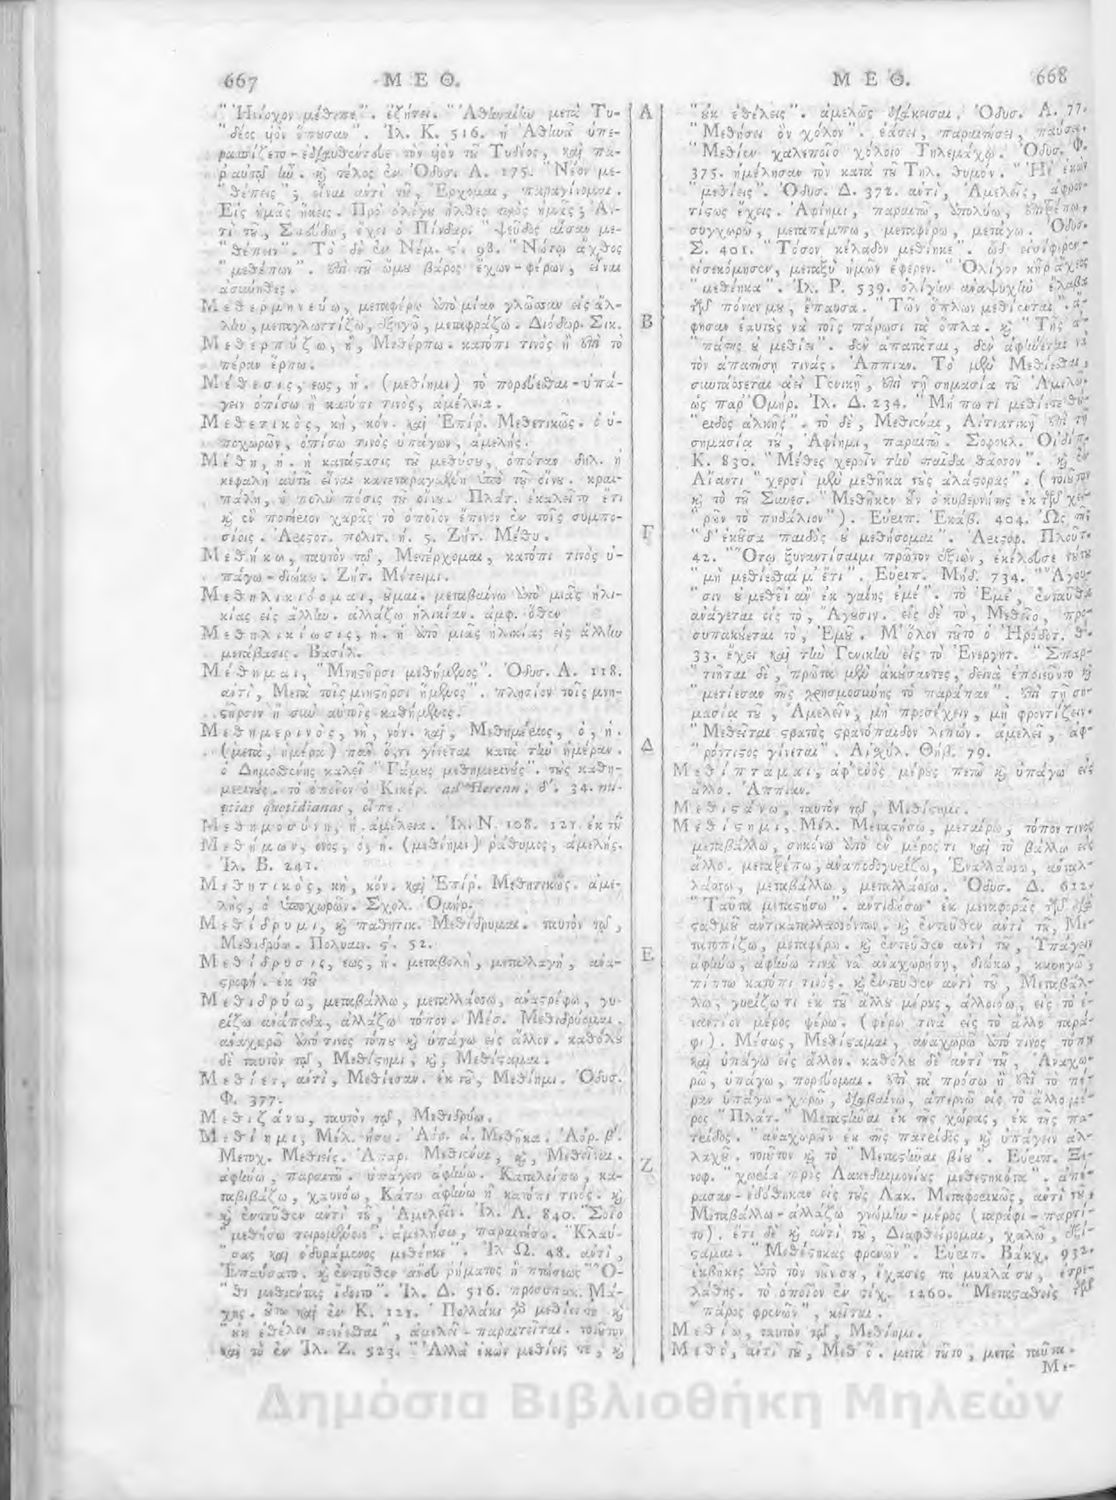 667 ΜΕΘ.
"Ἡνίοχον μέθεπε". ἐζήτει. "Ἀθηναίην μετὰ Τυ-
"δέος υἱὸν ἕπουσαν". Ἰλ. Κ. 516. ἡ Ἀθηνᾶ ὑπε-
"θέπεις"; εἶναι ἀντὶ τοῦ, Ἔρχομαι, παραγίνομαι.
Εἰς ἡμᾶς ἥκεις. Πρὸ ὀλίγου ἦλθες πρὸς ἡμᾶς; Ἀν-
"θέπων". Τὸ δὲ ἐν Νέμ. ς'. 98. "Νώτῳ ἄχθος
"μεθέπων". ἐπὶ τοῦ ὤμου βάρος ἔχων-φέρων, εἶναι
ἀσυνήθες.
Μεθερμηνεύω, μεταφέρω ἀπὸ μίαν γλῶσσαν εἰς ἄλ-
λην, μεταγλωττίζω, ἐξηγῶ, μεταφράζω. Διόδωρ. Σικ.
Μεθερπύζω, ἢ, Μεθέρπω. κατόπι τινὸς ἢ ἐπὶ τὸ
πέραν ἕρπω.
Μέθεσις, εως, ἡ. (μεθίημι) τὸ πορεύεσθαι-ὑπά-
γειν ὀπίσω ἢ κατόπι τινός, ἀμέλεια.
Μεθετικὸς, κὴ, κόν. καὶ Ἐπίῤ. Μεθετικῶς. ὁ ὑ-
ποχωρῶν, ὀπίσω τινὸς ὑπάγων, ἀμελής.
Μέθη, ἡ. ἡ κατάστασις τοῦ μεθύσου, ὁπόταν δηλ. ἡ
κεφαλὴ αὐτοῦ εἶναι κατατεταραγμένη ἀπὸ τοῦ οἴνου. κραι-
πάλη, ἡ πολὺ πόσις τοῦ οἴνου. Πλάτ. ἐκαλεῖτο ἔτι
καὶ ἓν ποτήριον χαρᾶς τὸ ὁποῖον ἔπινον ἐν τοῖς συμπο-
σίοις. Ἀριστοτ. πολιτ. ή. 5. Ζήτ. Μέθυ.
Μεθήκω, ταυτὸν τῷ, Μετέρχομαι, κατόπι τινὸς ὑ-
πάγω-διώκω. Ζήτ. Μέτειμι.
Μεθηλικιόομαι, οῦμαι. μεταβαίνω ἀπὸ μιᾶς ἡλι-
κίας εἰς ἄλλην. ἀλλάζω ἡλικίαν. ἀμφ. ὅθεν
Μεθηλικίωσις, ἡ. ἡ ἀπὸ μιᾶς ἡλικίας εἰς ἄλλην
μετάβασις. Βασίλ.
Μέθημαι, "Μνηστῆρσι μεθήμενος". Ὀδυσ. Α. 118.
ἀντὶ, Μετὰ τοῖς μνηστῆρσι ἥμενος". πλησίον τοῖς μνη-
στῆρσιν ἢ σὺν αὐτοῖς καθήμενος.
Μεθημερινὸς, νὴ, νόν. καὶ, Μεθημέριος, ὁ, ἡ.
(μετὰ, ἡμέρα) πᾶν ὅ,τι γίνεται κατὰ τὴν ἡμέραν.
ὁ Δημοσθένης καλεῖ "Γάμους μεθημερινούς". τοὺς καθη-
μερινούς. τὸ ὁποῖον ὁ Κικέρ. ad Herenn. δ'. 34. nu-
ptias quotidianas, εἶπε.
Μεθημοσύνη, ἡ. ἀμέλεια. Ἰλ. Ν. 108. 121. ἐκ τοῦ
Μεθήμων, ονος, ὁ, ἡ. (μεθίημι) ῥάθυμος, ἀμελής.
Ἰλ. Β. 241.
Μεθητικὸς, κὴ, κόν. καὶ Ἐπίῤ. Μεθητικῶς. ἀμε-
λὴς, ὁ ὑποχωρῶν. Σχολ. Ὁμήρ.
Μεθίδρυμι, καὶ παθητικ. Μεθίδρυμαι. ταυτὸν τῷ,
Μεθιδρύω. Πολυαιν. ς'. 52.
Μεθίδρυσις, εως, ἡ. μεταβολὴ, μεταλλαγὴ, ἀνα-
στροφή. ἐκ τοῦ
Μεθιδρύω, μεταβάλλω, μεταλλάσσω, ἀναστρέφω, γυ-
ρίζω ἀνάποδα, ἀλλάζω τόπον. Μέσ. Μεθιδρύομαι.
ἀναχωρῶ ἀπὸ τινὸς τόπου καὶ ὑπάγω εἰς ἄλλον. καθόλου
δὲ ταυτὸν τῷ, Μεθίστημι, καὶ, Μεθίσταμαι.
Μεθίει, ἀντὶ, Μεθίεσαν. ἐκ τοῦ, Μεθίημι. Ὀδυσ.
Φ. 377.
Μεθιζάνω, ταυτὸν τῷ, Μεθιδρύω.
Μεθίημι, Μέλ. ήσω. Ἀόρ. ά. Μεθῆκα. Ἀόρ. β'.
Μετοχ. Μεθείς. Ἀπαρ. Μεθιέναι, καὶ, Μεθεῖναι.
ἀφήνω, παραιτῶ. ὑπάγειν ἀφήνω. Καταλείπω, κα-
ταβιβάζω, χαυνόω, Κάτω ἀφήνω ἢ κατόπι τινός. καὶ
καὶ ἐντεῦθεν ἀντὶ τοῦ, Ἀμελεῖν. Ἰλ. Λ. 840. "Σοῖο
"μεθήσω τειρομένοιο". ἀμελήσω, παραιτήσω. "Κλαύ-
"σας καὶ ὀδυράμενος μεθέηκε". Ἰλ. Ω. 48. ἀντὶ,
"θι μεθιέντας ἴδοιτο". Ἰλ. Δ. 516. προσυπακ. Μά-
χης. οὕτω καὶ ἐν Κ. 121. "Πολλάκι γὰρ μεθίει τε καὶ
"οὐκ ἐθέλει πονέεσθαι", ἀμελεῖ-παραιτεῖται. τοιοῦτον
καὶ τὸ ἐν Ἰλ. Ζ. 523. "Ἀλλὰ ἑκὼν μεθίεις τε, καὶ
Α
Β
Γ
Δ
Ε
Ζ
ΜΕΘ. 668
"οὐκ ἐθέλεις". ἀμελῶς διάκεισαι. Ὀδυσ. Α. 77.
"Μεθήσει ὃν χόλον". ἐάσει, παραιτήσει, παύσει.
"Μεθίεν χαλεποῖο χόλοιο Τηλεμάχῳ. Ὀδυσ. Φ.
375. ἠμέλησαν τὸν κατὰ τοῦ Τηλ. θυμόν. "Ἠὲ ἑκὼν
"μεθίεις". Ὀδυσ. Δ. 372. ἀντὶ, Ἀμελεῖς, ἀφρον-
τίστως ἔχεις. Ἀφίημι, παραιτῶ, ἀπολύω, ἐπιτρέπω,
συγχωρῶ, μεταπέμπω, μεταφέρω, μετάγω. Ὀδυσ.
Σ. 401. "Τόσον κέλαδον μεθίηκε". ὧδ' εἰσέφερεν-
εἰσεκόμησεν, μεταξὺ ἡμῶν ἔφερεν. "Ὀλίγον κῆρ ἄχεος
"μεθέηκα". Ἰλ. Ρ. 539. ὀλίγην ἀναψυχὴν ἔλαβα
τῶν πόνων μου, ἔπαυσα. "Τῶν ὅπλων μεθίενται". ἄ-
φησαν ἑαυτοὺς νὰ τοῖς πάρωσι τὰ ὅπλα. καὶ "Τῆς ἀ-
"πάτης οὐ μεθίει". δὲν ἀπατᾶται, δὲν ἀφήνεται νὰ
τὸν ἀπατήσῃ τινάς. Ἀππιαν. Τὸ μὲν Μεθίεσθαι,
συντάσσεται ἀεὶ Γενικῇ, ἐπὶ τῇ σημασίᾳ τοῦ Ἀμελῶ.
ὡς παρ' Ὁμήρ. Ἰλ. Δ. 234. "Μή πω τι μεθίετε θού-
"ριδος ἀλκῆς". τὸ δὲ, Μεθιέναι, Αἰτιατικῇ ἐπὶ τῇ
σημασίᾳ τοῦ, Ἀφίημι, παραιτῶ. Σοφοκλ. Οἰδίπ.
Κ. 830. "Μέθες χεροῖν τὴν παῖδα θᾶσσον". καὶ ἐν
Αἴαντι "χερσὶ μὲν μεθῆκα τοὺς ἀλάστορας". (τοιοῦτον
καὶ τὸ τοῦ Συνεσ. "Μεθῆκεν οὖν ὁ κυβερνήτης ἐκ τῶν χει-
"ρῶν τὸ πηδάλιον"). Εὐριπ. Ἑκάβ. 404. "Ὡς τῆς
"δ' ἑκοῦσα παιδὸς οὐ μεθήσομαι". Ἀριστοφ. Πλούτ.
42. "Ὅτῳ ξυναντήσαιμι πρῶτον ἐξιὼν, ἐκέλευσε τούτου
"μὴ μεθίεσθαί μ' ἔτι". Εὐριπ. Μήδ. 734. "Ἄγου-
"σιν οὐ μεθεῖ' ἂν ἐκ γαίης ἐμέ". τὸ Ἐμὲ, ἐνταῦθα
ἀνάγεται εἰς τὸ, Ἄγουσιν. εἰς δὲ τὸ, Μεθεῖο, προσ-
συπακούεται τὸ, Ἐμοῦ. Μ' ὅλον τοῦτο ὁ Ἡρόδοτ. θ'.
33. ἔχει καὶ τὴν Γενικὴν εἰς τὸ Ἐνεργητ. "Σπαρ-
"τιῆται δὲ, πρῶτα μὲν ἀκούσαντες, δεινὰ ἐποιεῦντο καὶ
"μετίεσαν τῆς χρησμοσύνης τὸ παράπαν". ἐπὶ τῇ ση-
μασίᾳ τοῦ, Ἀμελεῖν, μὴ προσέχειν, μὴ φροντίζειν.
"Μεθεῖται στρατὸς στρατόπεδον λιπών. ἀμελεῖ, ἀφ-
"ρόντιστος γίνεται". Αἰσχύλ. Θηβ. 79.
Μεθίπταμαι, ἀφ' ἑνὸς μέρος πετῶ καὶ ὑπάγω εἰς
ἄλλο. Ἀππιαν.
Μεθιστάνω, ταυτὸν τῷ, Μεθίστημι.
Μεθίστημι, Μέλ. Μεταστήσω, μεταίρω, τόπον τινὸς
μεταβάλλω, σηκόνω ἀπὸ ἓν μέρος τι καὶ τὸ βάλλω εἰς
ἄλλο. μετατρέπω, ἀναποδογυρίζω, Ἐναλλάσσω, ἀνταλ-
λάσσω, μεταβάλλω, μεταλλάσσω. Ὀδυσ. Δ. 612.
"Ταῦτα μεταστήσω". ἀντιδώσω· ἐκ μεταφορᾶς τῶν διὰ
σταθμοῦ ἀντικαταλλασσόντων. καὶ ἐντεῦθεν ἀντὶ τοῦ, Με-
τατοπίζω, μεταφέρω. καὶ ἐντεῦθεν ἀντὶ τοῦ, Ὑπάγειν
ἀφήνω, ἀφήνω τινὰ νὰ ἀναχωρήσῃ, διώκω, κυνηγῶ,
πίπτω κατόπι τινός. καὶ ἐντεῦθεν ἀντὶ τοῦ, Μεταβάλ-
λω, γυρίζω τι ἐκ τοῦ ἄλλου μέρους, ἀλλοιόω, εἰς τὸ ἐ-
ναντίον μέρος φέρω. (φέρω τινὰ εἰς τὸ ἄλλο ταρά-
φι). Μέσως, Μεθίσταμαι, ἀναχωρῶ ἀπὸ τινὸς τόπου
καὶ ὑπάγω εἰς ἄλλον. καθόλου δὲ ἀντὶ τοῦ, Ἀναχω-
ρῶ, ὑπάγω, πορεύομαι. ἐπὶ τὰ πρόσω ἢ ἐπὶ τὸ πέ-
ραν ὑπάγω-χωρῶ, διαβαίνω, ἀπερνῶ εἰς τὸ ἄλλο μέ-
ρος "Πλάτ." Μεταστῆναι ἐκ τῆς χώρας, ἐκ τῆς πα-
τρίδος. "ἀναχωρεῖν ἐκ τῆς πατρίδος, καὶ ὑπάγειν ἀλ-
λαχοῦ. τοιοῦτον καὶ τὸ "Μεταστῆναι βίου". Εὐριπ. Ξε-
νοφ. "χωρία πρὸς Λακεδαιμονίους μεθεστηκότα". ἀπέ-
ρασαν-ἐδόθηκαν εἰς τοὺς Λακ. Μεταφορικῶς, ἀντὶ τοῦ,
Μεταβάλλω-ἀλλάζω γνώμην-μέρος (ταράφι-παρτί-
το). ἔτι δὲ καὶ ἀντὶ τοῦ, Διαφθείρομαι, χαλῶ, ἐξί-
σταμαι. "Μεθέστηκας φρενῶν". Εὐριπ. Βάκχ. 932.
ἐκβῆκες ἀπὸ τὸν νοῦν σου, ἔχασες τὰ μυαλά σου, ἐτρε-
λάθης. τὸ ὁποῖον ἐν στίχ. 1260. "Μετασταθεὶς τῶν
"πάρος φρενῶν", κεῖται.
Μεθίω, ταυτὸν τῷ, Μεθίημι.
Μεθὸ, ἀντὶ τοῦ, Μεθ' ὅ. μετὰ τοῦτο, μετὰ ταῦτα.
Με-
Δημόσια Βιβλιοθήκη Μηλεών